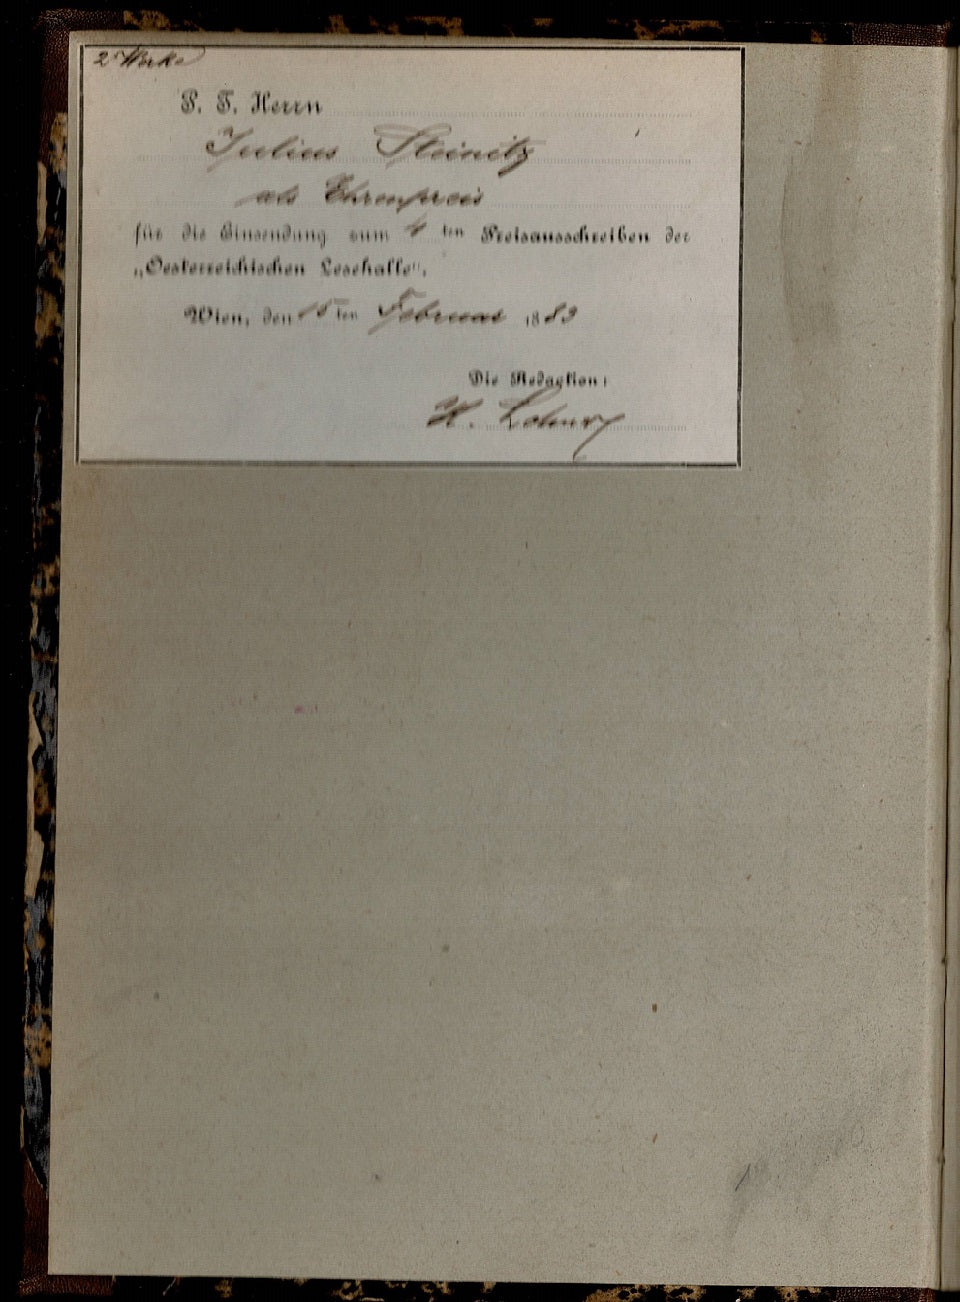 2 Werke
P. T. Herrn
Julius Steinitz
als Ehrenpreis
für die Einsendung zum 4 ten Preisausschreiben der
„Oesterreichischen Lesehalle“.
Wien, den 15 ten Februar 1883
Die Redaktion: